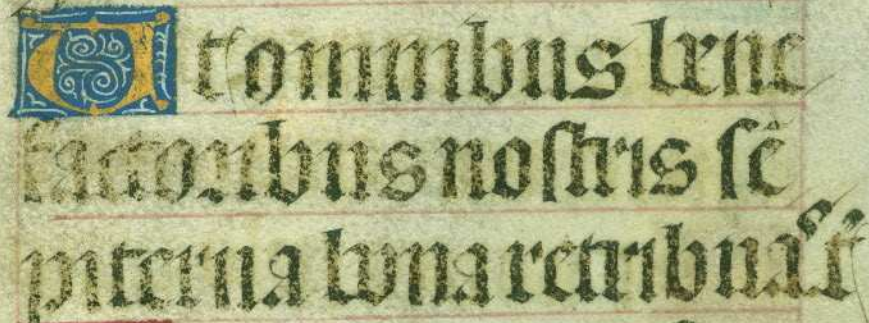 Ut omnibus bene
factoribus nostris sē
piterna bona retribuas t